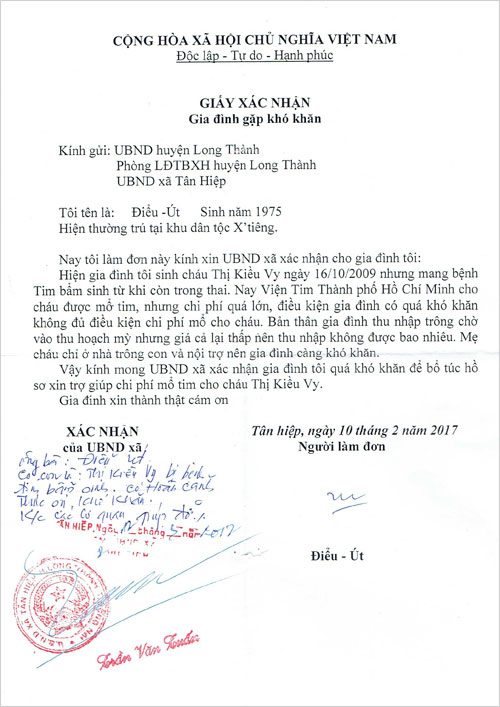 CỘNG HÒA XÃ HỘI CHỦ NGHĨA VIỆT NAM
Độc lập - Tự do - Hạnh phúc
GIẤY XÁC NHẬN
Gia đình gặp khó khăn
Kính gửi: UBND huyện Long Thành
Phòng LĐTBXH huyện Long Thành
UBND xã Tân Hiệp
Tôi tên là: Điểu -Út Sinh năm 1975
Hiện thường trú tại khu dân tộc X'tiêng.
Nay tôi làm đơn này kính xin UBND xã xác nhận cho gia đình tôi:
Hiện gia đình tôi sinh cháu Thị Kiều Vy ngày 16/10/2009 nhưng mang bệnh
Tim bẩm sinh từ khi còn trong thai. Nay Viện Tim Thành phố Hồ Chí Minh cho
cháu được mổ tim, nhưng chi phí quá lớn, điều kiện gia đình có quá khó khăn
không đủ điều kiện chi phí mổ cho cháu. Bản thân gia đình thu nhập trông chờ
vào thu hoạch mỳ nhưng giá cả lại thấp nên thu nhập không được bao nhiêu. Mẹ
cháu chỉ ở nhà trông con và nội trợ nên gia đình càng khó khăn.
Vậy kính mong UBND xã xác nhận gia đình tôi quá khó khăn để bổ túc hồ
sơ xin trợ giúp chi phí mổ tim cho cháu Thị Kiều Vy.
Gia đình xin thành thật cám ơn
XÁC NHẬN
của UBND xã
Ông bà: Điểu Út
Có con là: Thị Kiều Vy bị bệnh
tim bẩm sinh, có hoàn cảnh
khó khăn,
K/c các cơ quan giúp đỡ.
TÂN HIỆP, Ngày tháng 5 năm 2017
U.B.N.D XÃ TÂN HIỆP
Trần Văn
Tân hiệp, ngày 10 tháng 2 năm 2017
Người làm đơn
Điểu - Út